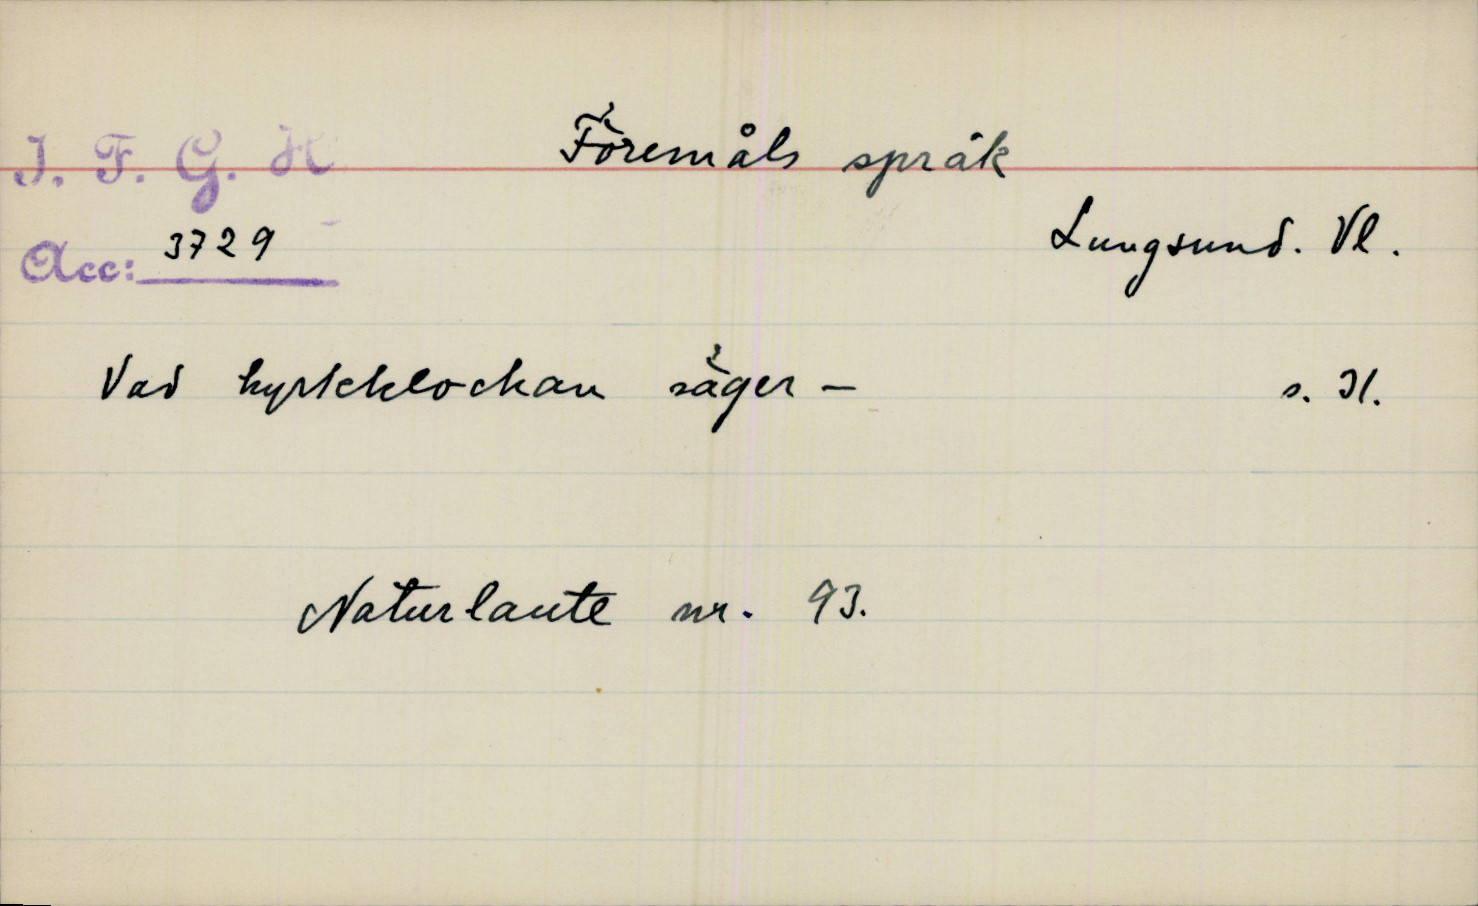 I. F. G. H
Föremåls språk
Acc: 3729
Lungsund. Vl.
Vad kyrkklockan säger – s. 31.
Naturlaute nr. 93.